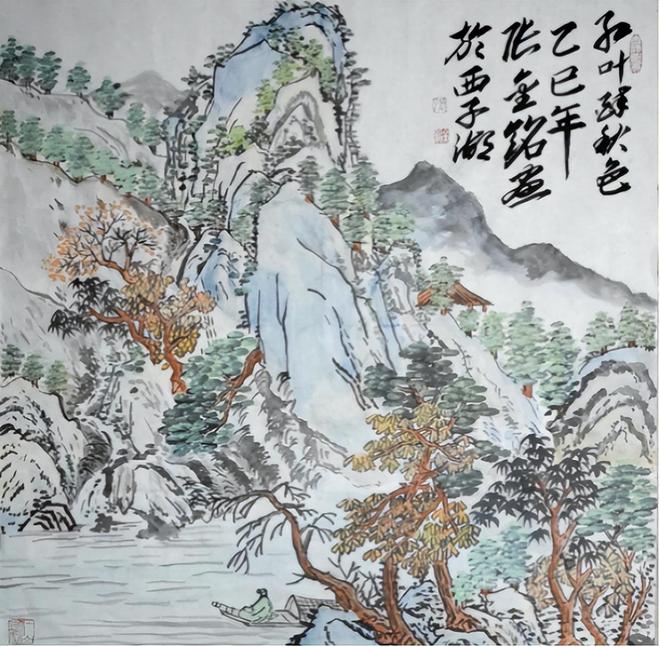 红叶醉秋色
乙巳年
张金铭画
于西子湖